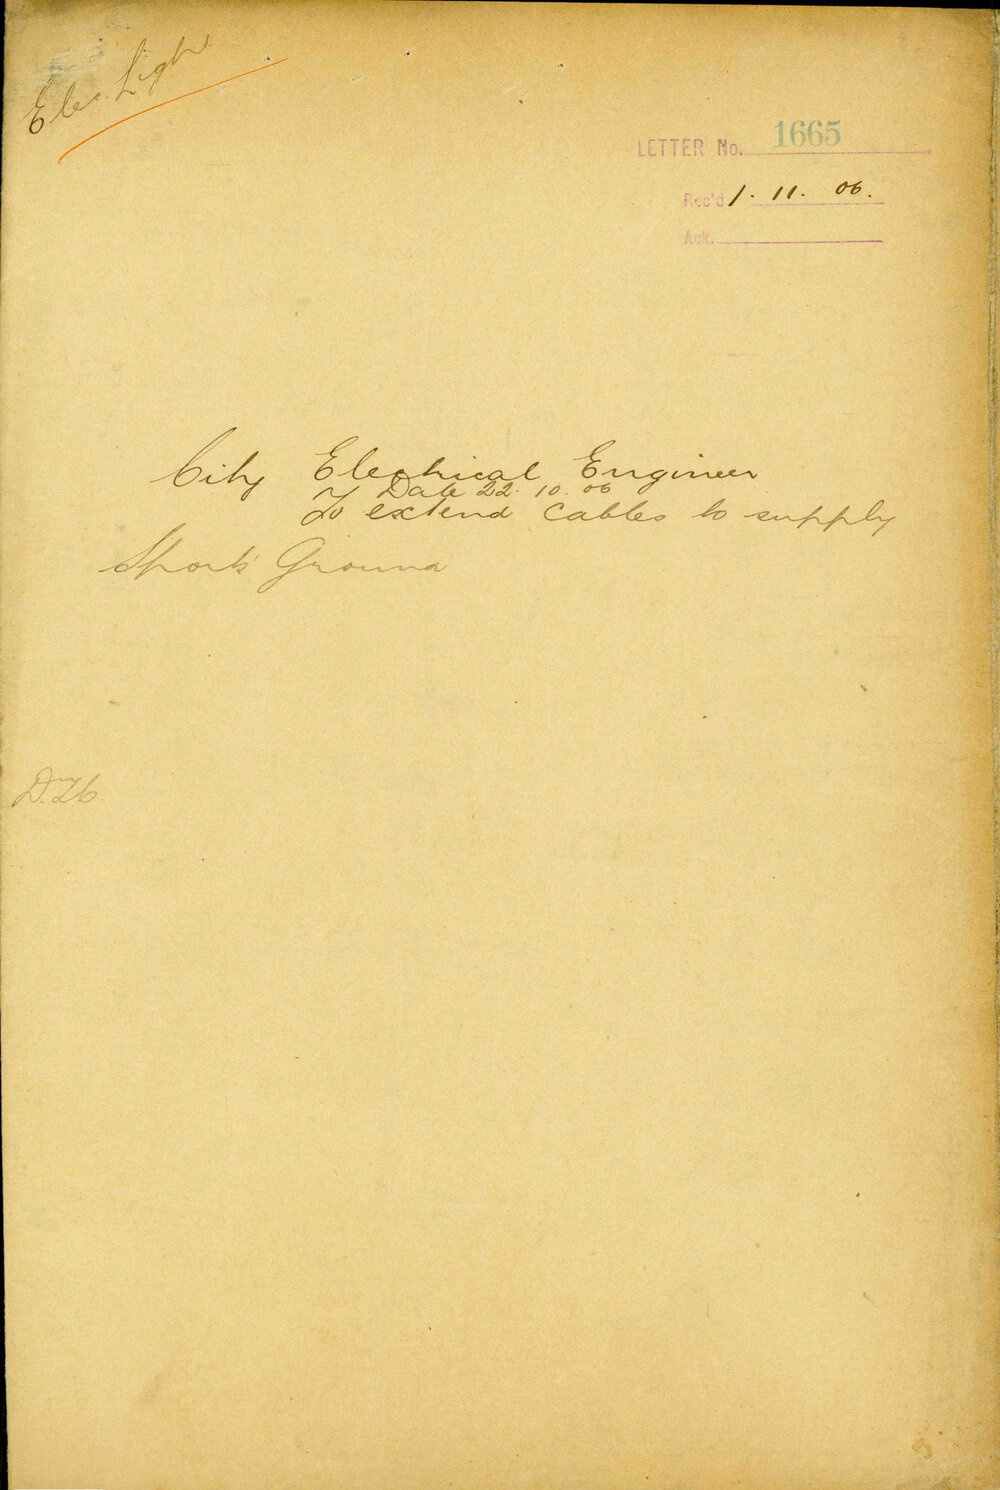 Elec. Light
LETTER No. 1665
Rec'd 1. 11. 06.
Ack.
City Electrical Engineer
Date 22. 10. 06
To extend cables to supply
Sports Ground